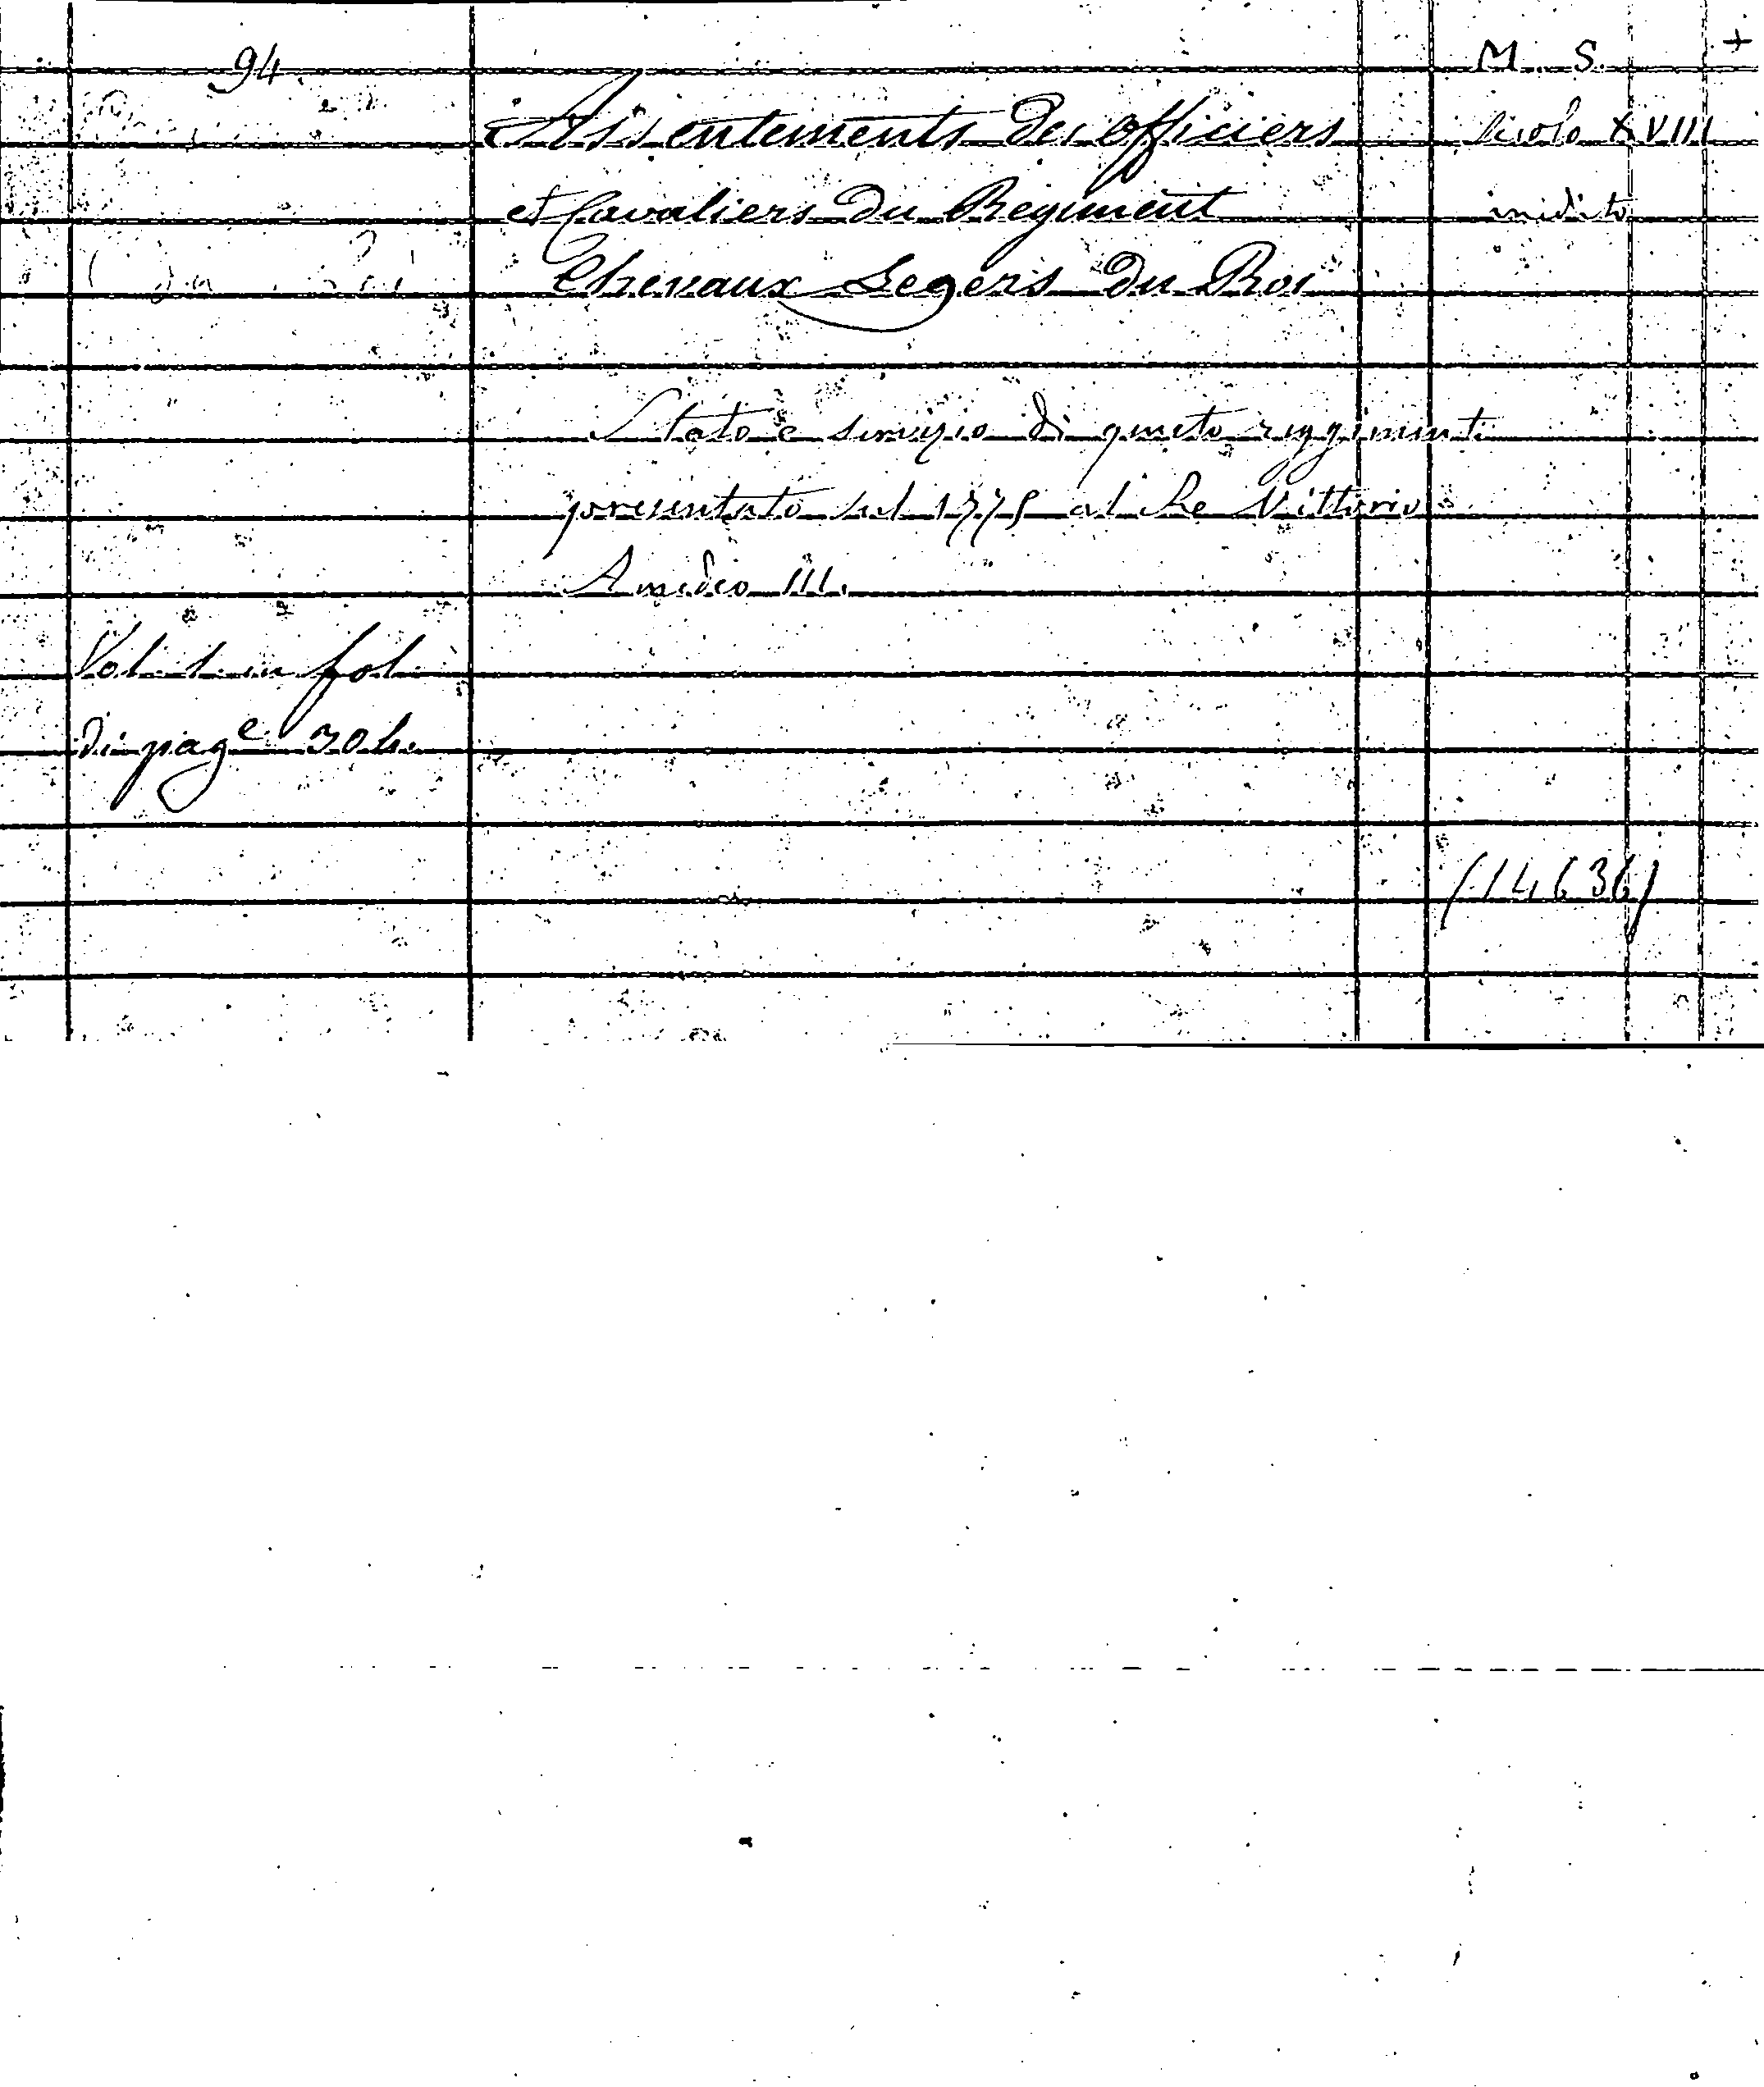 94
M. S. +
Assentements des officiers
secolo XVIII
et Cavaliers du Regiment
inedito
Chevaux Legers du Roi
Stato e servizio di questo reggimento
presentato nel 1775 al Re Vittorio
Amedeo III.
Vol. 1. in fol.
di pag.e 304.
(14636)